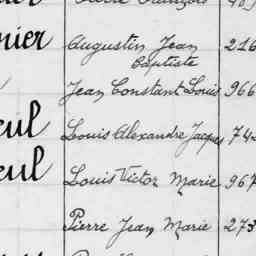 nier Augustin Jean 216
Baptiste
Jean Constant Louis 966
eul Louis Alexandre Jacques 742
eul Louis Victor Marie 967
Pierre Jean Marie 273